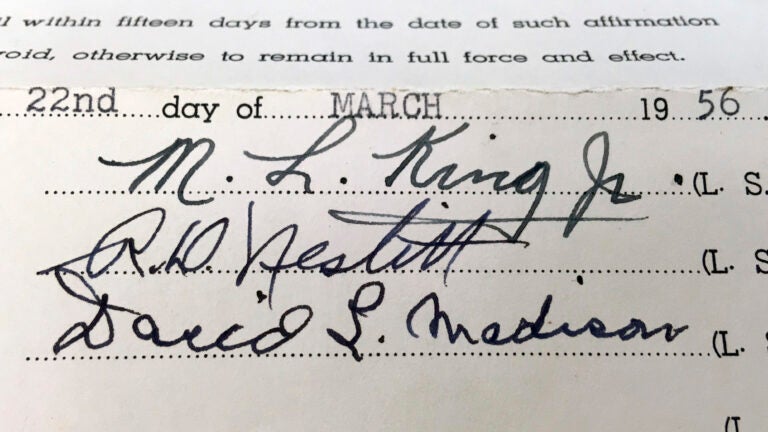 l within fifteen days from the date of such affirmation
oid, otherwise to remain in full force and effect.
22nd day of MARCH 19 56.
M. L. King Jr (L. S.
R. D. Nesbitt (L. S
David L. Madison (L. S
(L